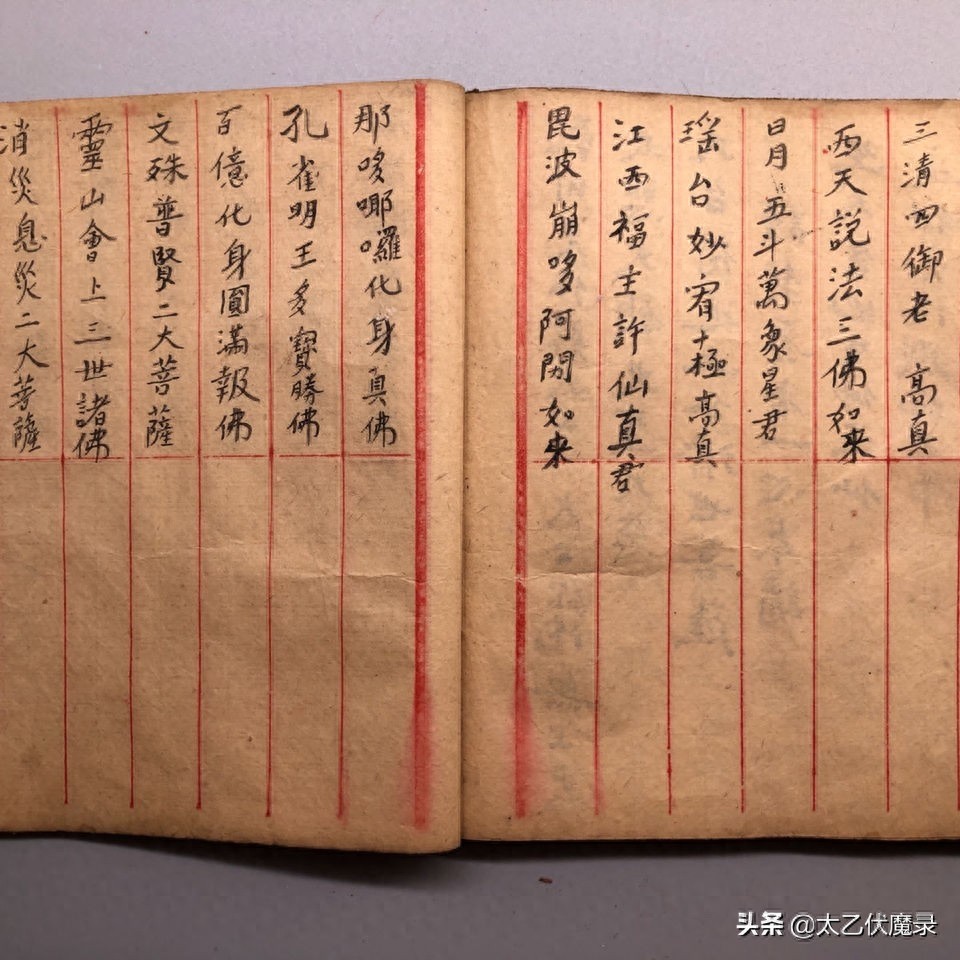 三清四御老 高真
西天説法三佛如來
日月五斗萬象星君
瑶台妙宥十極高真
江西福主許仙真君
毘波崩哆阿閦如来
那哆哪囉化身真佛
孔雀明王多寳勝佛
百億化身圓滿報佛
文殊普賢二大菩薩
靈山會上三世諸佛
消災息災二大菩薩
头条 @太乙伏魔录